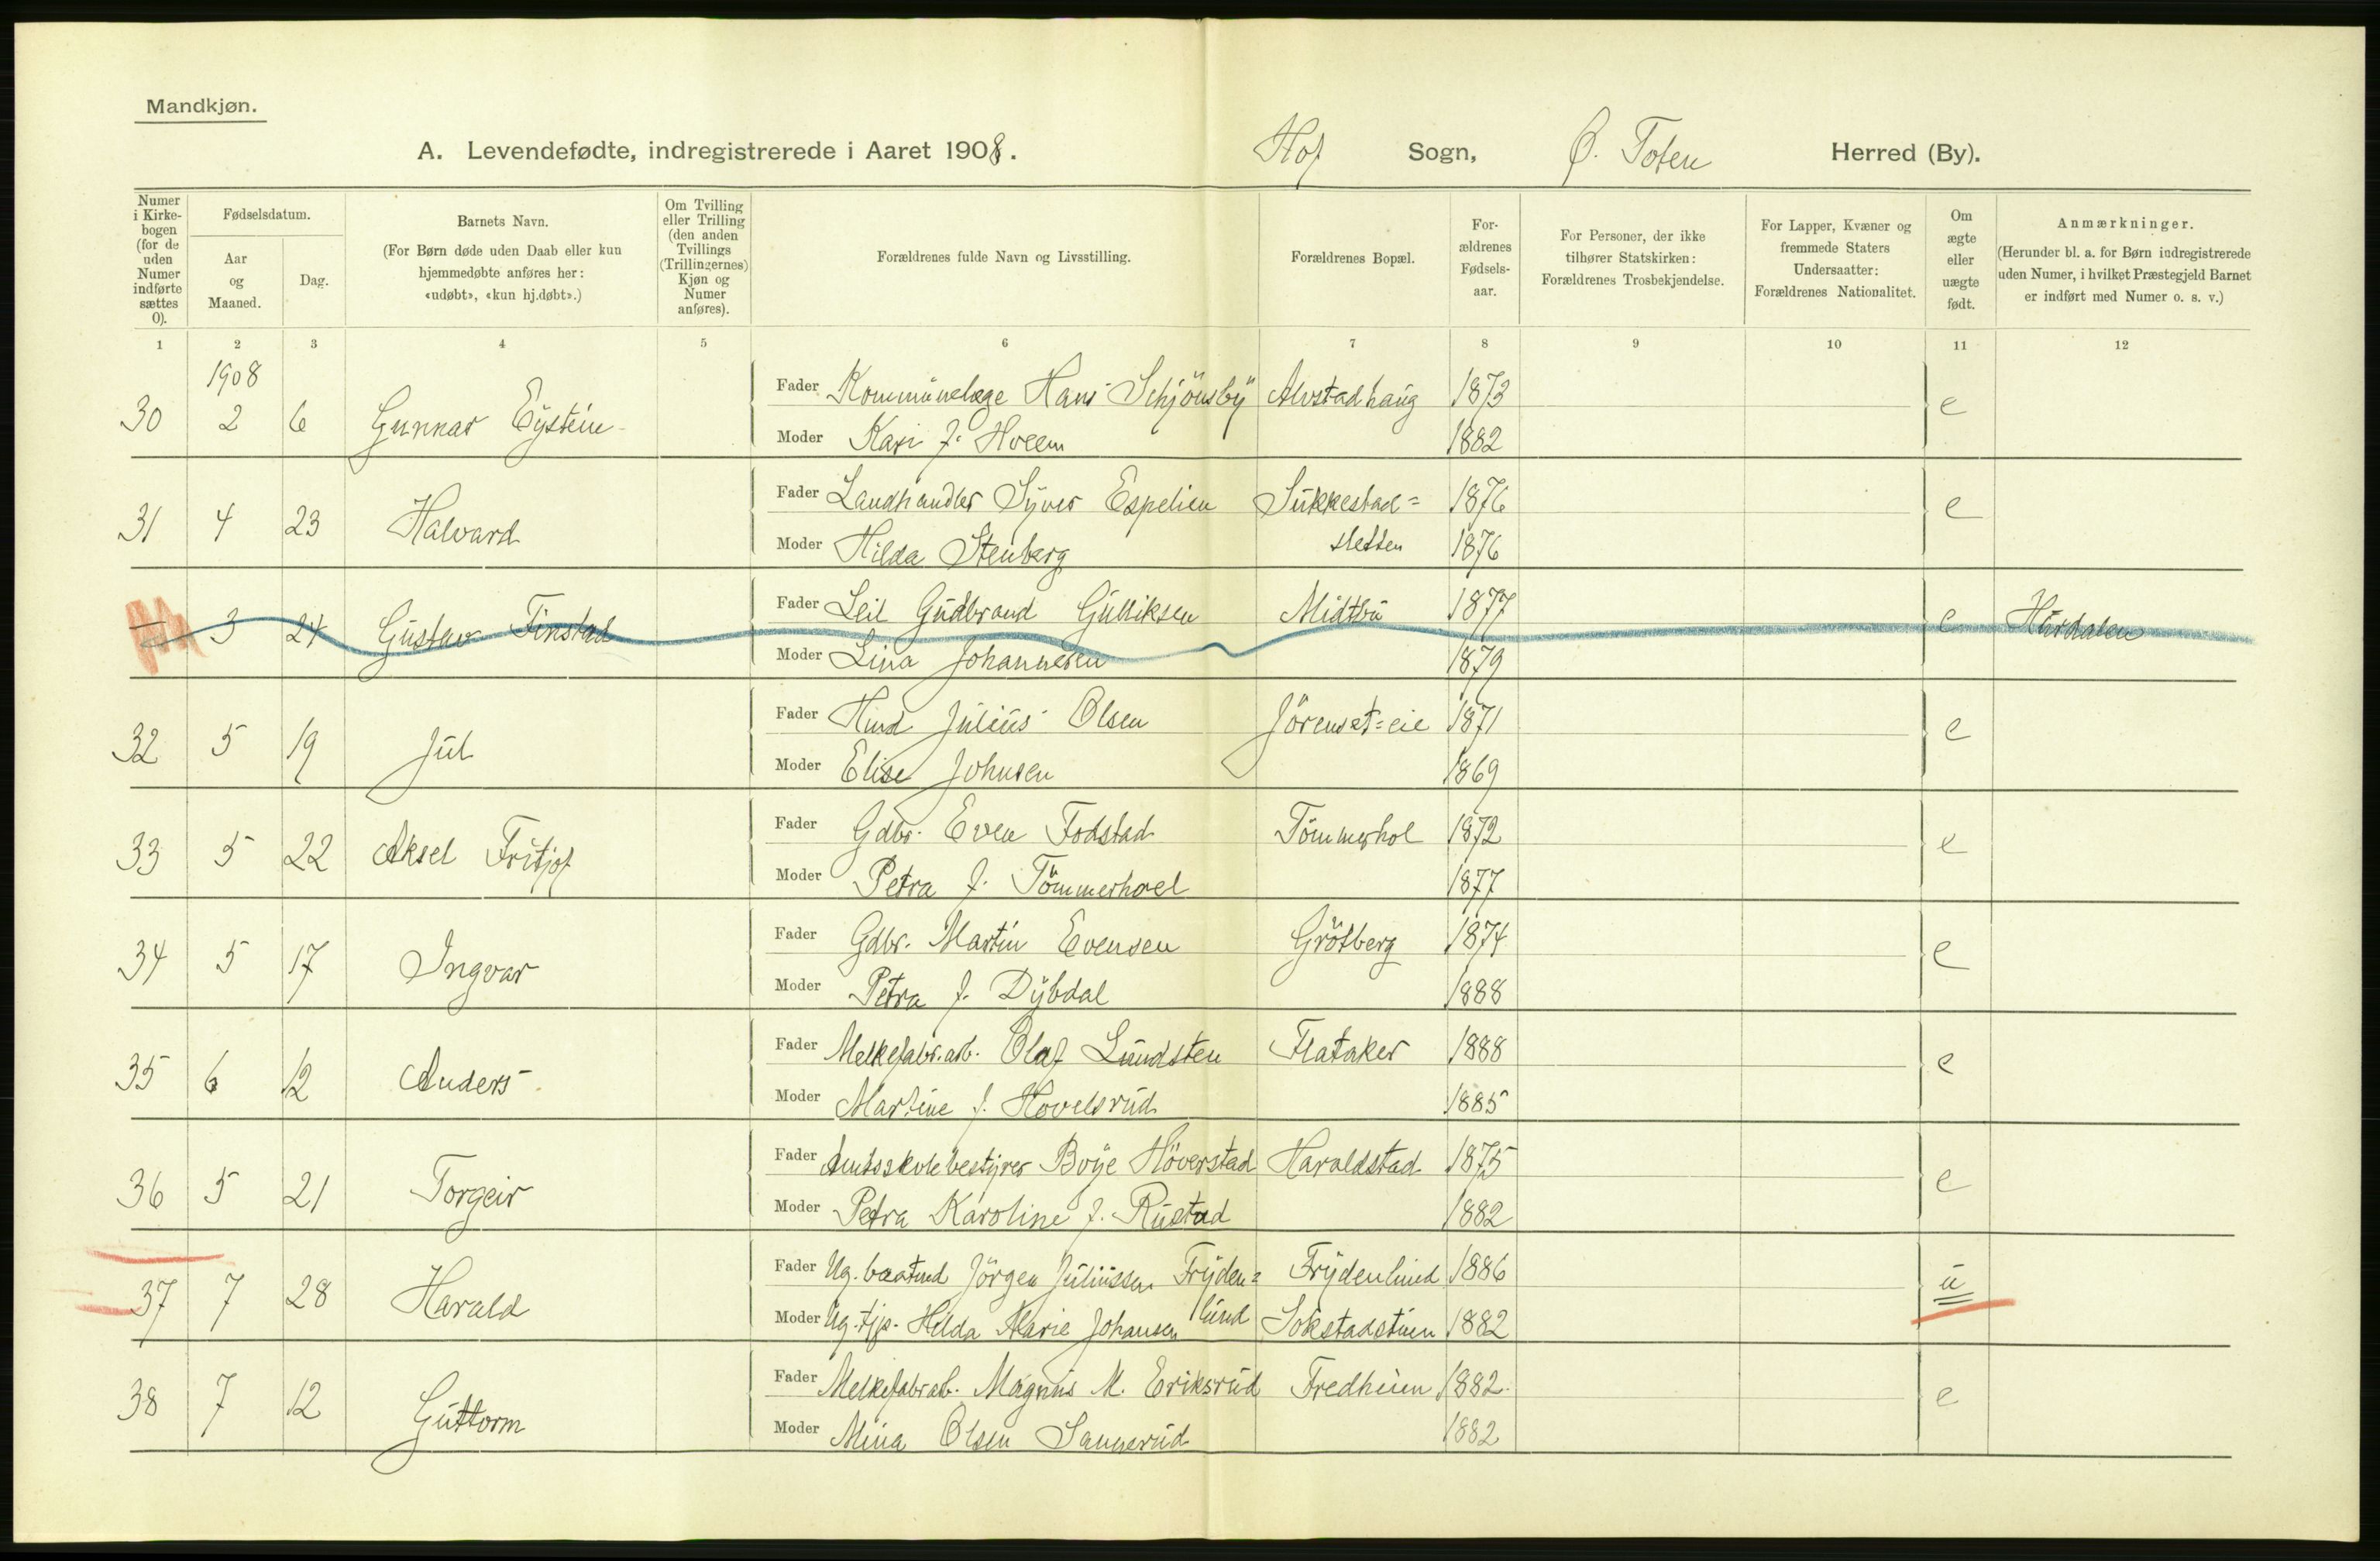 Mandkjøn.
A. Levendefødte, indregistrerede i Aaret 1908. Hof Sogn, Ø. Toten Herred (By).
Numer i Kirke-bogen (for de uden Numer indførte sættes 0).
Fødselsdatum.
Aar og Maaned.
Dag.
Barnets Navn.
(For Børn døde uden Daab eller kun
hjemmedøbte anføres her:
«udøbt», «kun hj.døbt».)
Om Tvilling eller Trilling (den anden Tvillings (Trillingernes) Kjøn og Numer anføres).
Forældrenes fulde Navn og Livsstilling.
Forældrenes Bopæl.
For-ældrenes Fødsels-aar.
For Personer, der ikke
tilhører Statskirken:
Forældrenes Trosbekjendelse.
For Lapper, Kvæner og
fremmede Staters
Undersaatter:
Forældrenes Nationalitet.
Om ægte eller uægte født.
Anmærkninger.
(Herunder bl. a. for Børn indregistrerede
uden Numer, i hvilket Præstegjeld Barnet
er indført med Numer o. s. v.)
1 2 3 4 5 6 7 8 9 10 11 12
1908
30 2 6 Gunnar Eystein Fader Kommunelæge Hans Schjönsby Alvstadhaug 1873 e
Moder Kari f. Hveem 1882
31 4 23 Halvard Fader Landhandler Syver Espelien Sukkestad= 1876 e
Moder Hilda Stenberg sletten 1876
3 24 Gustav Finstad Fader Leil Gudbrand Gulliksen Midtbu 1877 e Hurdalen
Moder Lina Johannesen 1879
32 5 19 Jul Fader Hmd Julius Olsen Jörenset=eie 1871 e
Moder Elise Johnsen 1869
33 5 22 Aksel Fritjof Fader Gdbr. Even Fodstad Tömmerhol 1872 e
Moder Petra f. Tömmerhoel 1877
34 5 17 Ingvar Fader Gdbr. Martin Evensen Grötberg 1874 e
Moder Petra f. Dybdal 1888
35 6 12 Anders Fader Melkefabr.arb. Olaf Lundsten Flataker 1888 e
Moder Martine f. Hovelsrud 1885
36 5 21 Torgeir Fader Amtsskolebestyrer Boye Höverstad Haraldstad 1875 e
Moder Petra Karoline f. Rustad 1882
37 7 28 Harald Fader Ug. baatmd Jörgen Juliussen Fryden= Frydenlund 1886 u
Moder Ug. tjp. Hilda Marie Johansen lund Sokstadstuen 1882
38 7 12 Guttorm Fader Melkefabr.arb. Magnus M. Eriksrud Fredheim 1882 e
Moder Mina Olsen Sangerud 1882